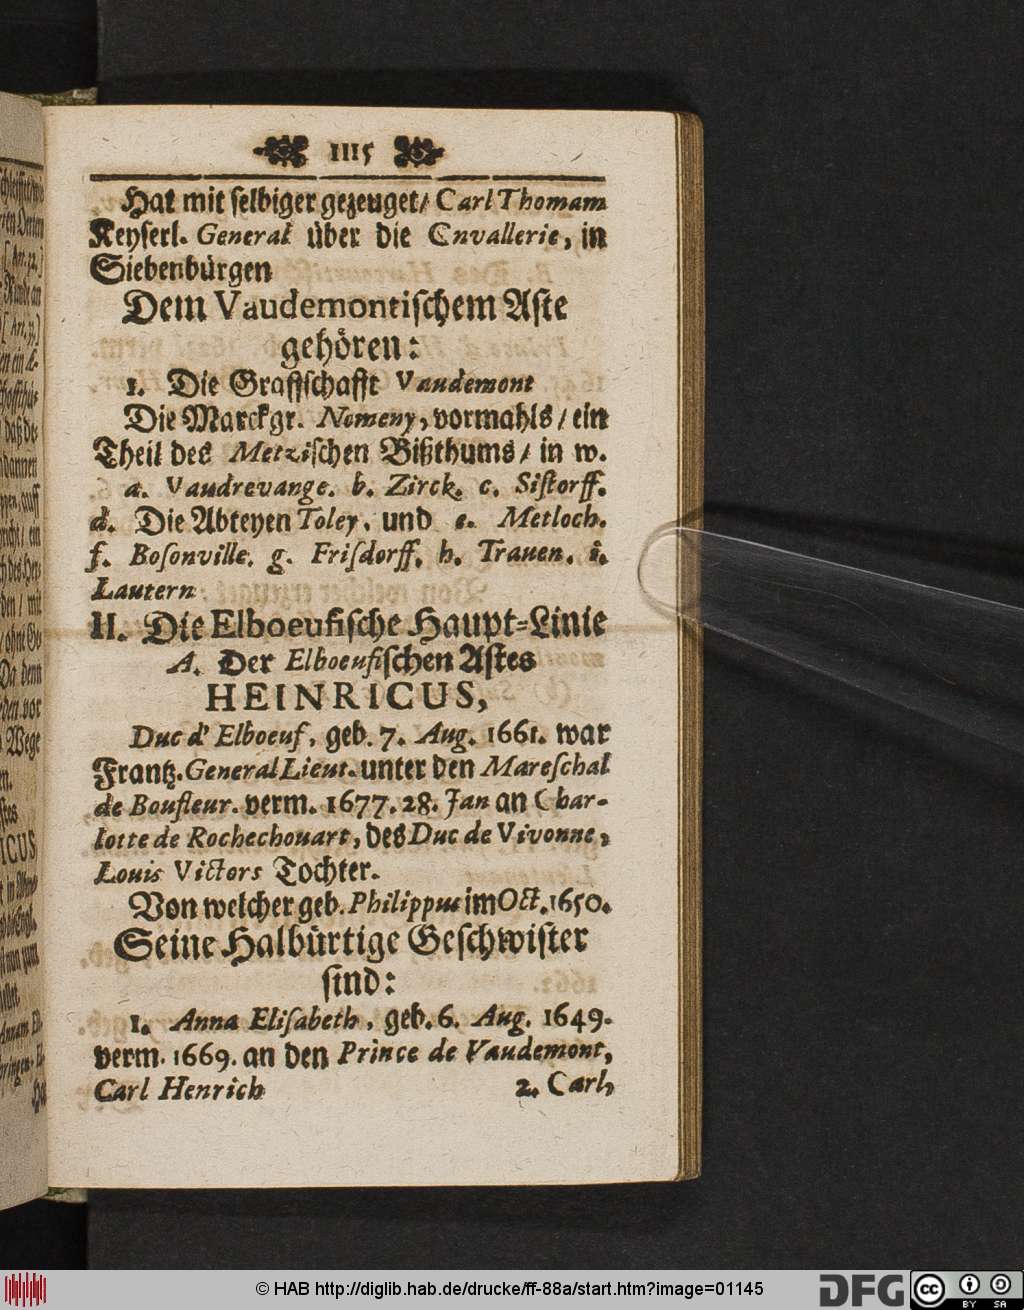 1115
Hat mit selbiger gezeuget/ Carl Thomam
Keyserl. General über die Cnvallerie, in
Siebenbürgen
Dem Vaudemontischem Aste
gehören:
1. Die Graffschafft Vaudemont
Die Marckgr. Nomeny, vormahls / ein
Theil des Metzischen Bißthums / in w.
a. Vaudrevange. b. Zirck. c. Sistorff.
d. Die Abteyen Toley, und e. Metloch.
f. Bosonville. g. Frisdorff. h. Trauen. i.
Lautern
II. Die Elboeufische Haupt-Linie
A. Der Elboeufischen Astes
HEINRICUS,
Duc d' Elboeuf, geb. 7. Aug. 1661. war
Frantz. General Lieut. unter den Mareschal
de Boufleur. verm. 1677. 28. Jan an Char-
lotte de Rochechouart, des Duc de Vivonne,
Louis Victors Tochter.
Von welcher geb. Philippus im Oct. 1650.
Seine Halbürtige Geschwister
sind:
1. Anna Elisabeth, geb. 6. Aug. 1649.
verm. 1669. an den Prince de Vaudemont,
Carl Henrich
2. Carl,
© HAB http://diglib.hab.de/drucke/ff-88a/start.htm?image=01145
DFG
cc BY SA